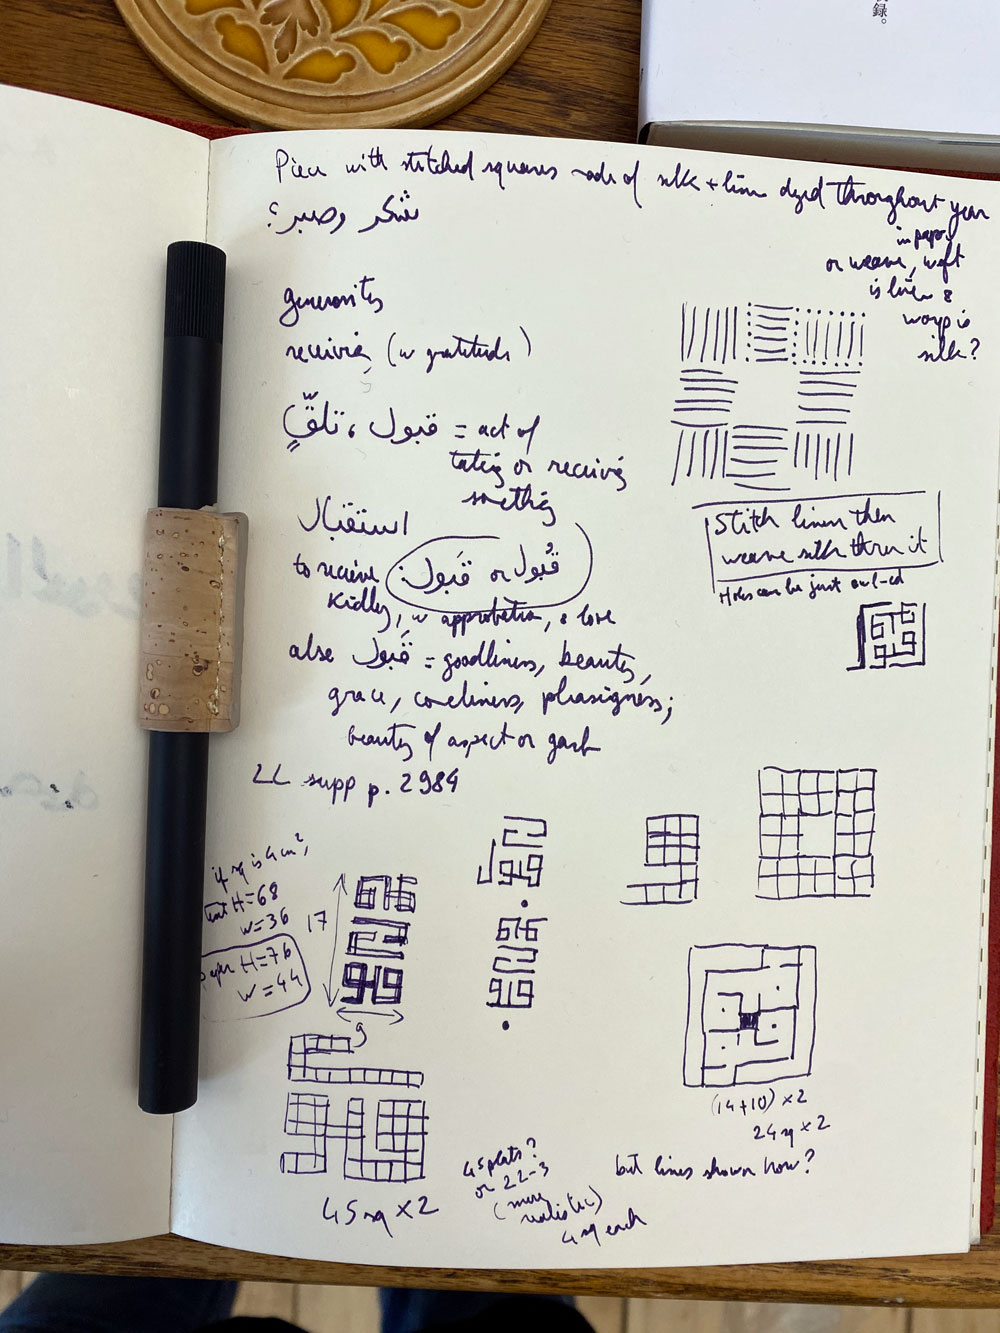 録。
Piece with stitched squares made of silk + linen dyed throughout year
شكر وصبر؟
in paper
or weave, weft
is linen &
warp is
silk?
generosity
receiving (w gratitude)
قبول، تلقٍّ = act of
taking or receiving
something
استقبال
to receive قَبول or قُبول
kindly, w approbation, & love
also قَبول = goodliness, beauty,
grace, comeliness, pleasingness;
beauty of aspect or garb
LL supp p. 2984
Stitch linen then
weave silk thru it
Holes can be just awl-ed
if sq is 4cm²,
H=68
W=36
paper H=76
W=44
17
9
45 sq x2
45 plats?
or 22-3
(more
realistic)
4 sq each
(14+10) x2
24 sq x2
but lines shown how?